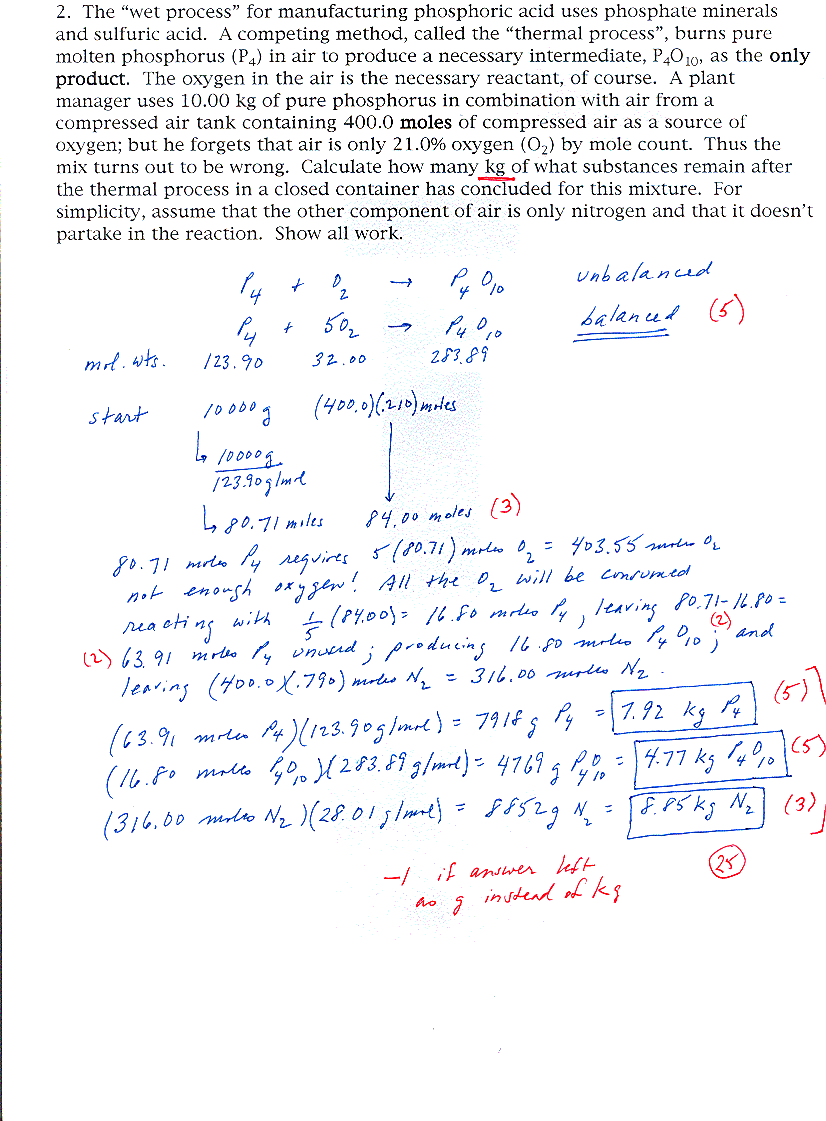 2. The “wet process” for manufacturing phosphoric acid uses phosphate minerals
and sulfuric acid. A competing method, called the “thermal process”, burns pure
molten phosphorus (P₄) in air to produce a necessary intermediate, P₄O₁₀, as the only
product. The oxygen in the air is the necessary reactant, of course. A plant
manager uses 10.00 kg of pure phosphorus in combination with air from a
compressed air tank containing 400.0 moles of compressed air as a source of
oxygen; but he forgets that air is only 21.0% oxygen (O₂) by mole count. Thus the
mix turns out to be wrong. Calculate how many kg of what substances remain after
the thermal process in a closed container has concluded for this mixture. For
simplicity, assume that the other component of air is only nitrogen and that it doesn’t
partake in the reaction. Show all work.
P₄ + O₂ → P₄O₁₀ unbalanced
P₄ + 5O₂ → P₄O₁₀ balanced (5)
mol. wts. 123.90 32.00 283.89
start 10000g (400.0)(.210) moles
↳ 10000g
123.90g/mol
↳ 80.71 moles 84.00 moles (3)
80.71 moles P₄ requires 5(80.71) moles O₂ = 403.55 moles O₂
not enough oxygen! All the O₂ will be consumed
reacting with 1/5 (84.00) = 16.80 moles P₄, leaving 80.71-16.80 =
(2) 63.91 moles P₄ unused; producing 16.80 moles P₄O₁₀ (2); and
leaving (400.0)(.790) moles N₂ = 316.00 moles N₂.
(63.91 moles P₄)(123.90g/mol) = 7918 g P₄ = 7.92 kg P₄ (5)
(16.80 moles P₄O₁₀)(283.89 g/mol) = 4769 g P₄O₁₀ = 4.77 kg P₄O₁₀ (5)
(316.00 moles N₂)(28.01 g/mol) = 8852g N₂ = 8.85 kg N₂ (3)
-1 if answer left (25)
as g instead of kg